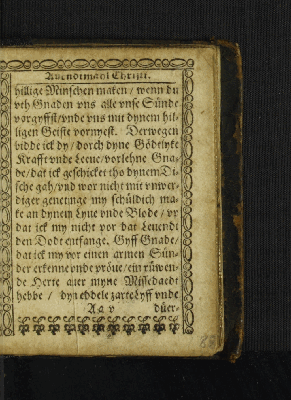 Auendtmahl Christi.
hillige Minschen maken / wenn du
vth Gnaden vns alle vnse Sünde
vorgyffst / vnde vns mit dynem hil-
ligen Geiste vornyest. Derwegen
bidde ick dy / dorch dyne Gödtlyke
Krafft vnde Leeue / vorlehne Gna-
de / dat ick geschicket tho dynem Di-
sche gah / vnd wor nicht mit vnwer-
diger genetinge my schüldich ma-
ke an dynem Lyue vnde Blode / vp
dat ick my nicht vor dat Leuendt
den Dodt entfange. Gyff Gnade /
dat ick my vor einen armen Sün-
der erkenne vnde pröue / ein rüwen-
de Herte auer myne Missedaedt
hebbe / dyn eddele zarte Lyff vnde
Aa v düer-
88